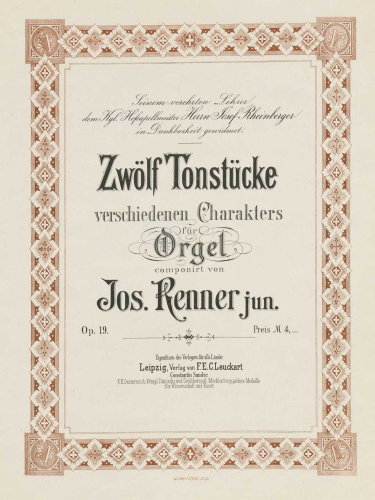 Seinem verehrten Lehrer
dem Kgl. Hofkapellmeister Herrn Josef Rheinberger
in Dankbarkeit gewidmet.
Zwölf Tonstücke
verschiedenen Charakters
für
Orgel
componirt von
Jos. Renner jun.
Op. 19. Preis M 4,_
Eigenthum des Verlegers für alle Länder.
Leipzig, Verlag von F.E.C. Leuckart
Constantin Sander
für Wissenschaft und Kunst